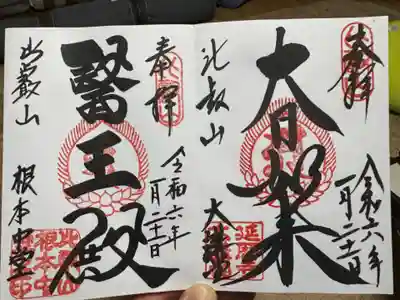 奉拝
令和六年
一月二十一日
大日如来
比叡山
大講堂
延暦寺
奉拝
令和六年
一月二十一日
醫王殿
比叡山
根本中堂
比叡山
根本中
堂之印